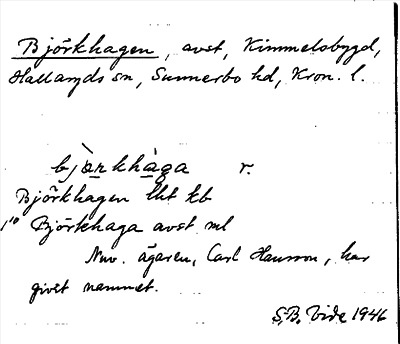 Björkhagen, avst, Kimmelsbygd,
Hallaryds sn, Sunnerbo hd, Kron. l.
bjànkhàga r.
Björkhagen lht kb
1/10 Björkhaga avst ml
Nuv. ägaren, Carl Hansson, har
givit namnet.
S.B. Vide 1946